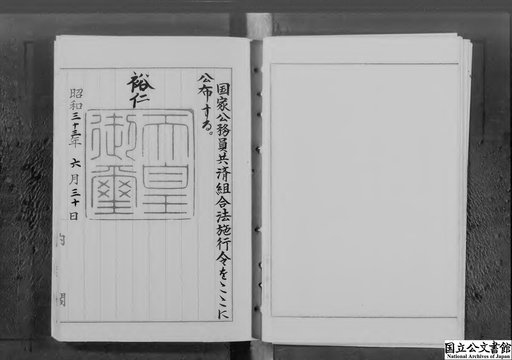 国家公務員共済組合法施行令をここに
公布する。
裕仁
天皇
御璽
昭和三十三年六月三十日
国立公文書館
National Archives of Japan